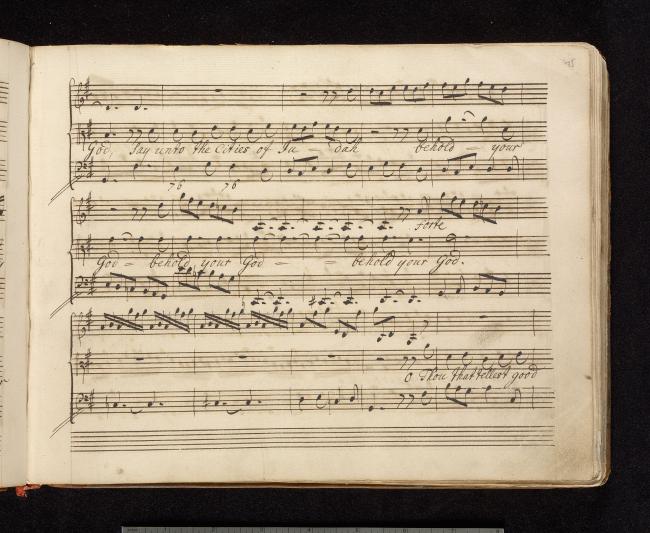 God, Say unto the Cities of Ju - dah behold - your
7 6 7 6
Forte
God - behold your God - - - behold your God.
O Thou that tellest good